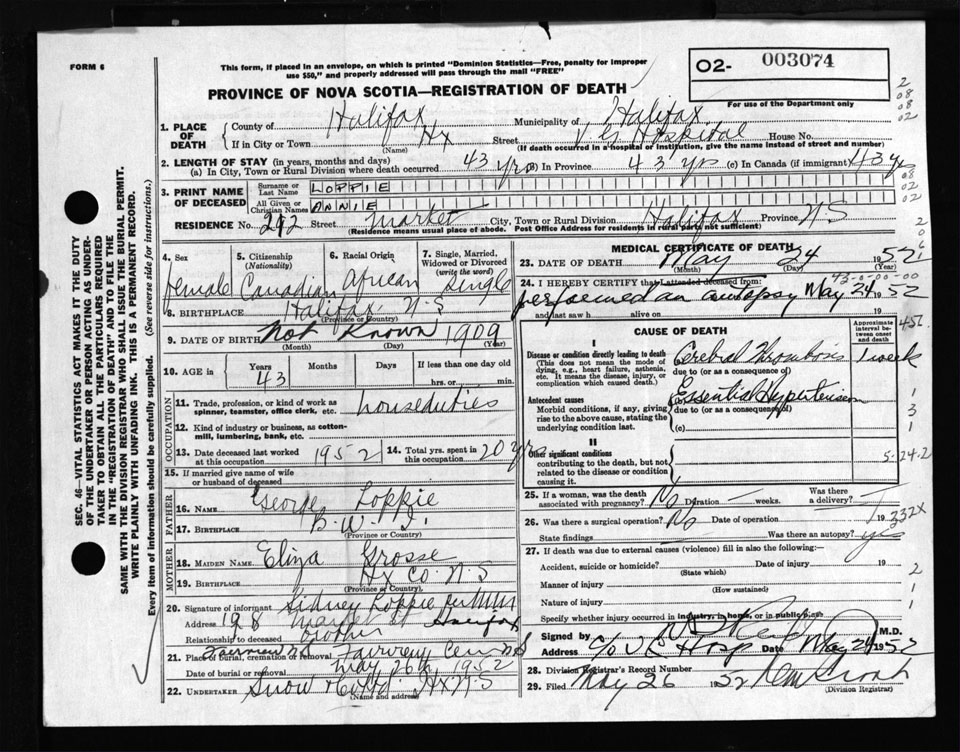 FORM 6
This form, if placed in an envelope, on which is printed "Dominion Statistics—Free, penalty for improper
use $50," and properly addressed will pass through the mail "FREE"
PROVINCE OF NOVA SCOTIA—REGISTRATION OF DEATH
O2- 003074
For use of the Department only
2
08
08
02
1. PLACE OF DEATH
County of Halifax Municipality of Halifax
If in City or Town Hx Street V. G. Hospital House No.
(Name) (If death occurred in a hospital or institution, give the name instead of street and number)
2. LENGTH OF STAY (in years, months and days)
(a) In City, Town or Rural Division where death occurred 43 yrs (b) In Province 43 yrs (c) In Canada (if immigrant) 43 yrs
3. PRINT NAME OF DECEASED
Surname or Last Name LOPPIE
All Given or Christian Names ANNIE
RESIDENCE No. 292 Street Market City, Town or Rural Division Halifax Province N.S
(Residence means usual place of abode. Post Office Address for residents in rural parts not sufficient)
4. Sex female
5. Citizenship (Nationality) Canadian
6. Racial Origin African
7. Single, Married, Widowed or Divorced (write the word) single
8. BIRTHPLACE Halifax N.S
(Province or Country)
9. DATE OF BIRTH Not Known 1909
(Month) (Day) (Year)
10. AGE in Years 43 Months Days If less than one day old
hrs. or min.
OCCUPATION
11. Trade, profession, or kind of work as spinner, teamster, office clerk, etc. houseduties
12. Kind of industry or business, as cotton-mill, lumbering, bank, etc.
13. Date deceased last worked at this occupation 1952
14. Total yrs. spent in this occupation 20 yrs
15. If married give name of wife or husband of deceased
FATHER
16. Name George Loppie
17. Birthplace B. W. I.
(Province or Country)
MOTHER
18. Maiden Name Eliza Grosse
19. Birthplace Hx Co. N.S
(Province or Country)
20. Signature of informant Sidney Loppie
Address 198 Market St Halifax
Relationship to deceased brother
21. Place of burial, cremation or removal Fairview Cem N S
Date of burial or removal May 26th, 1952
22. Undertaker Snow & Co Ltd Hx N.S
(Name and address)
MEDICAL CERTIFICATE OF DEATH
23. DATE OF DEATH May 24 1952
(Month) (Day) (Year)
43-0-00-00
24. I HEREBY CERTIFY that I attended deceased from:
performed an autopsy May 24 1952
and last saw h alive on
CAUSE OF DEATH
Approximate interval between onset and death
I
Disease or condition directly leading to death
(This does not mean the mode of dying, e.g., heart failure, asthenia, etc. It means the disease, injury, or complication which caused death.)
Cerebral Thrombosis 1 week
due to (or as a consequence of)
Antecedent causes
Morbid conditions, if any, giving rise to the above cause, stating the underlying condition last.
Essential Hypertension
due to (or as a consequence of)
(c)
II
Other significant conditions
contributing to the death, but not related to the disease or condition causing it.
5-24-2
25. If a woman, was the death associated with pregnancy? No Duration — weeks. Was there a delivery? —
26. Was there a surgical operation? No Date of operation 19 332X
State findings — Was there an autopsy? yes
27. If death was due to external causes (violence) fill in also the following:—
Accident, suicide or homicide? Date of injury 19
(State which)
Manner of injury
(How sustained)
Nature of injury
Specify whether injury occurred in industry, in home, or in public place
Signed by M.D.
Address c/o V G Hosp Date May 24 1952
28. Division Registrar's Record Number
29. Filed May 26 1952
(Division Registrar)
SEC. 46—VITAL STATISTICS ACT MAKES IT THE DUTY
OF THE UNDERTAKER OR PERSON ACTING AS UNDER-
TAKER TO OBTAIN ALL THE PARTICULARS REQUIRED
IN THE "REGISTRATION OF DEATH" AND TO FILE THE
SAME WITH THE DIVISION REGISTRAR WHO SHALL ISSUE THE BURIAL PERMIT.
WRITE PLAINLY WITH UNFADING INK. THIS IS A PERMANENT RECORD.
Every item of information should be carefully supplied. (See reverse side for instructions.)